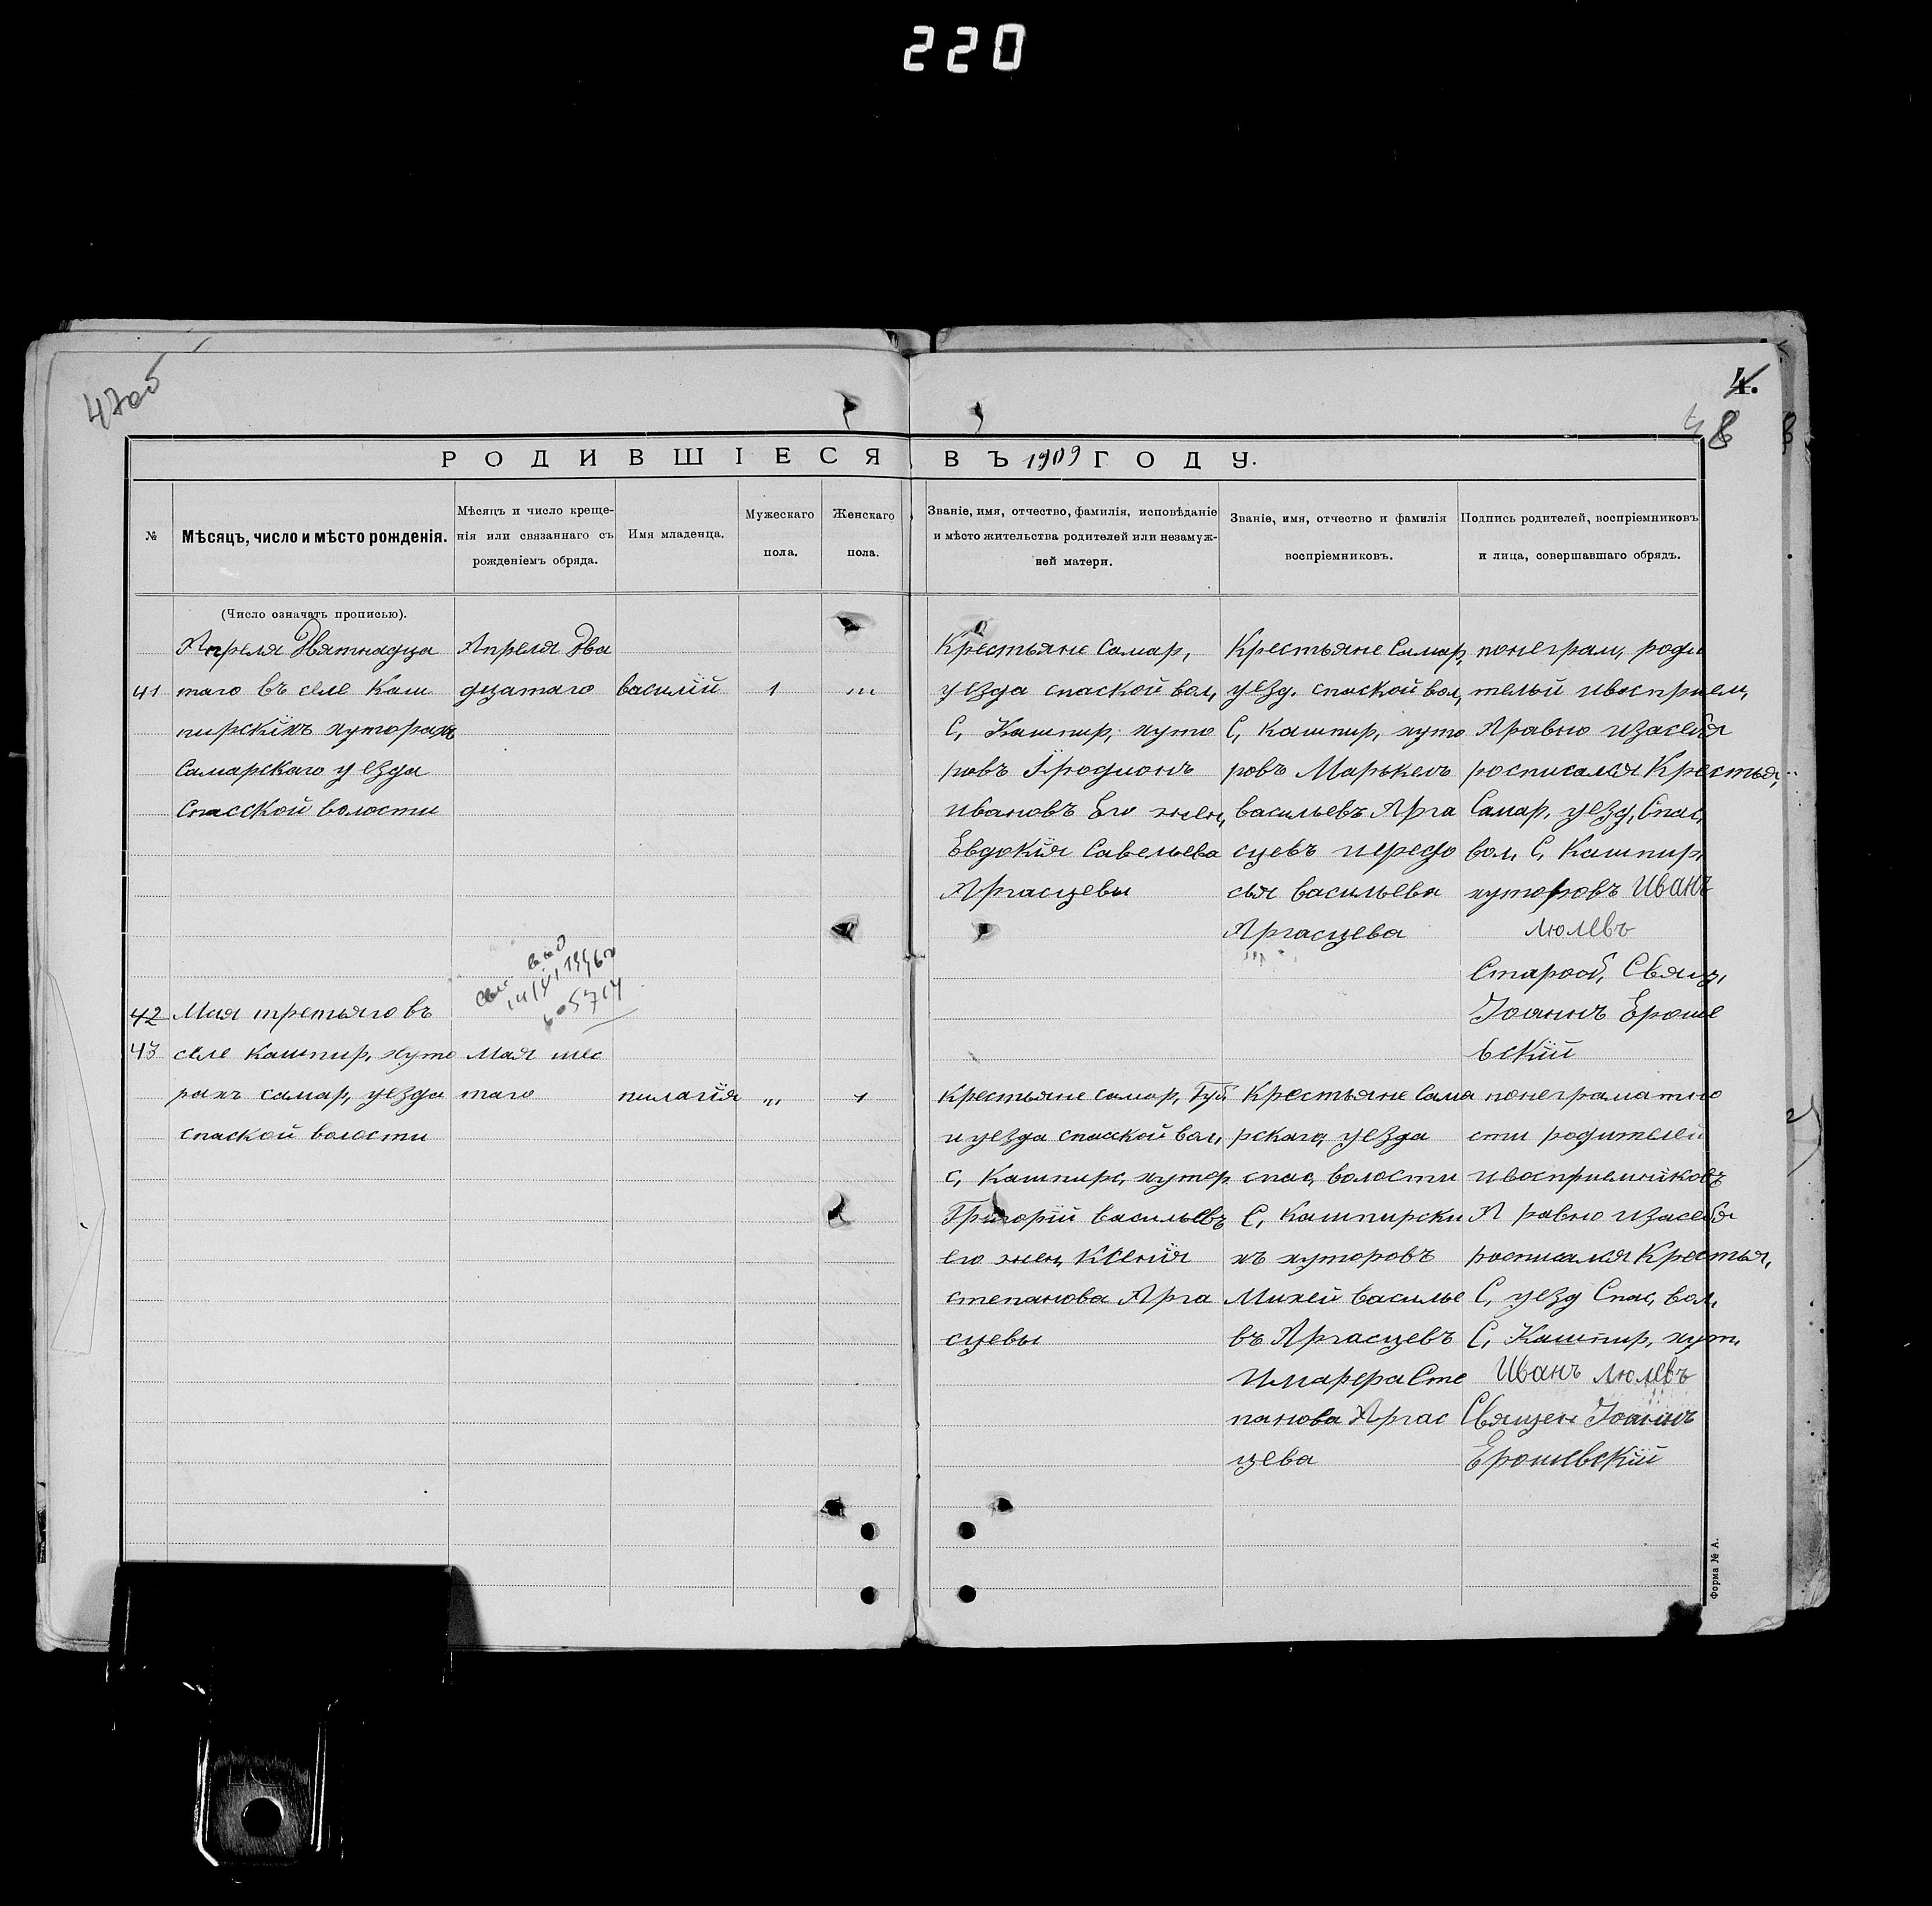 220
47об
4.
48
РОДИВШІЕСЯ ВЪ 1909 ГОДУ.
№
Мѣсяцъ, число и мѣсто рожденія.
Мѣсяцъ и число креще-
нія или связаннаго съ
рожденіемъ обряда.
Имя младенца.
Мужескаго
пола.
Женскаго
пола.
Званіе, имя, отчество, фамилія, исповѣданіе
и мѣсто жительства родителей или незамуж-
ней матери.
Званіе, имя, отчество и фамилія
воспріемниковъ.
Подпись родителей, воспріемниковъ
и лица, совершавшаго обрядъ.
(Число означать прописью).
41
Апреля Двятнадца
таго въ селе Каш
пирскихъ хуторахъ
Самарскаго уезда
Спасской волости
Апреля Два
дцатаго
василій
1
"'
Крестьяне Самар,
уезда спаской вол,
С, Кашпир, хуто
ровъ Іродионъ
ивановъ Его жен,
Евдокія Савельева
Аргасцевы
Крестьяне Самар,
уезд. спаской вол,
С, Кашпир, хуто
ровъ Маркелъ
васильевъ Арга
сцевъ
сья васильева
Аргасцева
понеграм, роди
телый ивосприем,
А равно изасебя
росписался Крестья,
Самар, уезд, Спас,
вол, С, Кашпир,
хуторовъ Иванъ
Люлевъ
Старооб, Свящ,
Іоаннъ Ероше
вскій
14/VI 1956
605714
42
43
Мая третьяго въ
селе Кашпир, хуто
рахъ самар, уезда
спаской волости
Мая шес
таго
пилагія
"'
1
Крестьяне самар, Губ
и уезда спасской вол,
С, Кашпирс, хутор
Григорій васильевъ
его жен, Ксенія
степанова Арга
сцевы
Крестьяне Сама
рскаго, уезда
спас, волости
С, Кашпирски
хъ хуторовъ
Михей василье
въ Аргасцевъ
Имарфа Сте
панова Аргас
цева
понеграматно
сти родителей
ивосприемниковъ
А равно изасебя
росписался Крестья,
С, уезд Спас, вол,
С, Кашпир, хут,
Иванъ Люлевъ
Священ Іоаннъ
Ерошевскій
Форма № А.